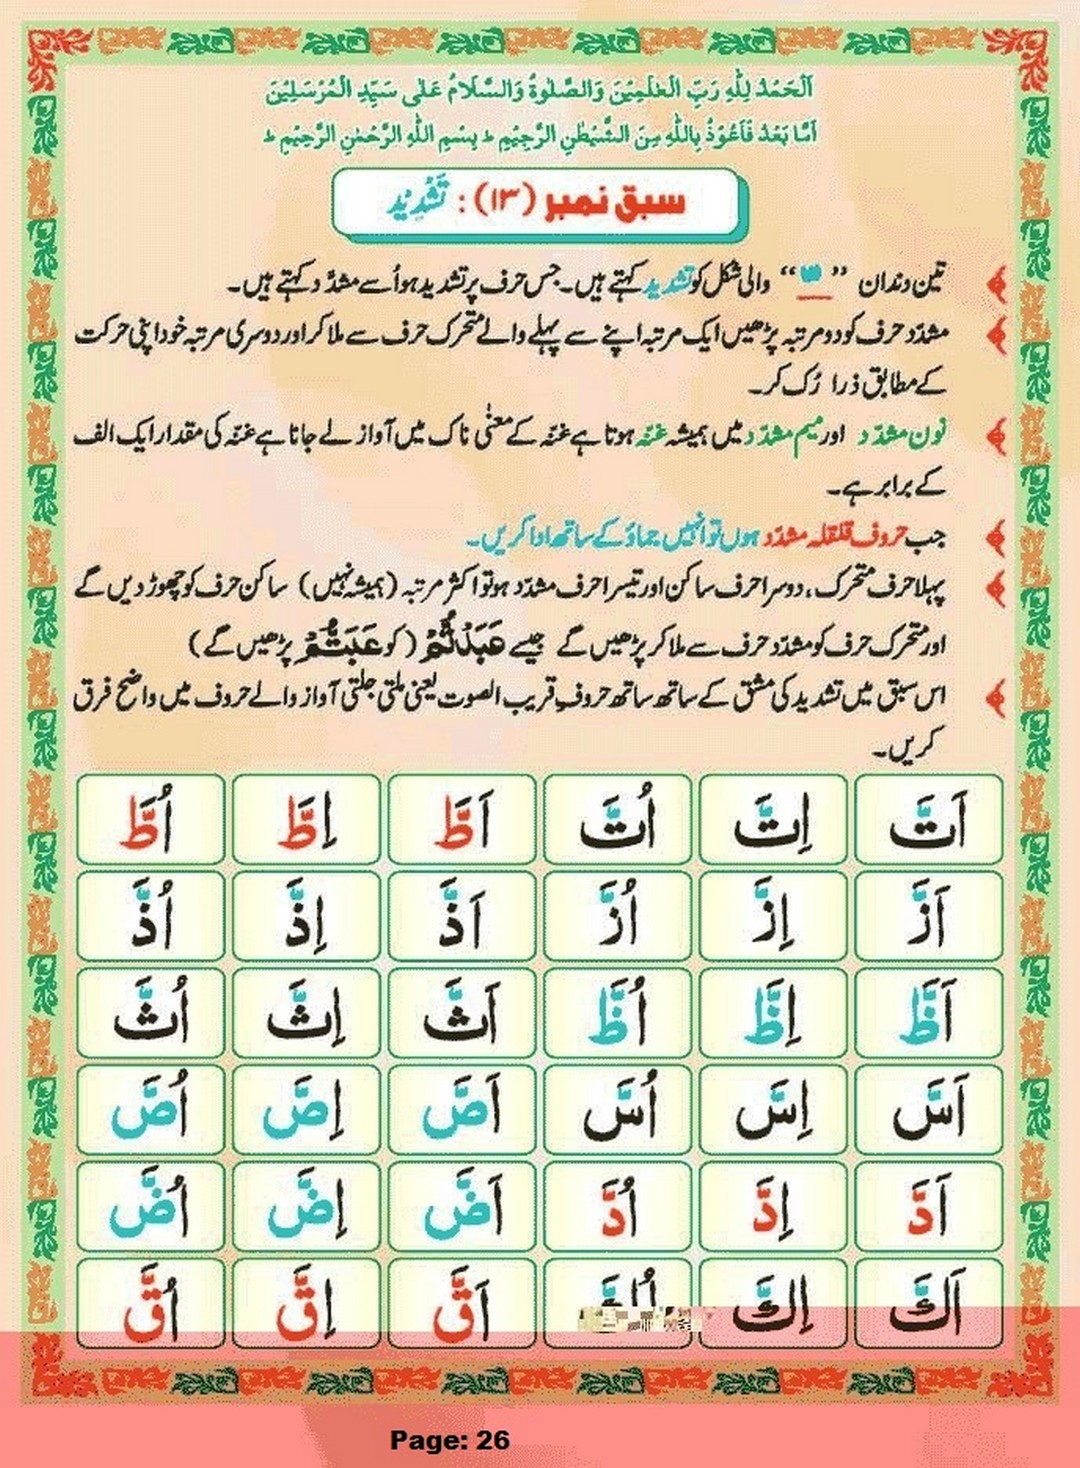 اَلْحَمْدُ لِلّٰهِ رَبِّ الْعٰلَمِيْنَ وَالصَّلٰوةُ وَالسَّلَامُ عَلٰى سَيِّدِ الْمُرْسَلِيْنَ
اَمَّا بَعْدُ فَاَعُوْذُ بِاللّٰهِ مِنَ الشَّيْطٰنِ الرَّجِيْمِ ط بِسْمِ اللّٰهِ الرَّحْمٰنِ الرَّحِيْمِ ط
سبق نمبر (۱۳) : تَشْدِیْد
تین دندان ” ّ “ والی شکل کو تشدید کہتے ہیں۔ جس حرف پر تشدید ہو اُسے مشدّد کہتے ہیں۔
مشدّد حرف کو دو مرتبہ پڑھیں ایک مرتبہ اپنے سے پہلے والے متحرک حرف سے ملا کر اور دوسری مرتبہ خود اپنی حرکت
کے مطابق ذرا رُک کر۔
نون مشدّد اور میم مشدّد میں ہمیشہ غنّہ ہوتا ہے غنّہ کے معنٰی ناک میں آواز لے جانا ہے غنّہ کی مقدار ایک الف
کے برابر ہے۔
جب حروف قلقلہ مشدّد ہوں تو انہیں جماؤ کے ساتھ ادا کریں۔
پہلا حرف متحرک، دوسرا حرف ساکن اور تیسرا حرف مشدّد ہو تو اکثر مرتبہ (ہمیشہ نہیں) ساکن حرف کو چھوڑ دیں گے
اور متحرک حرف کو مشدّد حرف سے ملا کر پڑھیں گے جیسے عَبَدْتُّمْ (کو عَبَتُّمْ پڑھیں گے)
اس سبق میں تشدید کی مشق کے ساتھ ساتھ حروفِ قریب الصوت یعنی ملتی جلتی آواز والے حروف میں واضح فرق
کریں۔
اَتَّ اِتَّ اُتَّ اَطَّ اِطَّ اُطَّ
اَزَّ اِزَّ اُزَّ اَذَّ اِذَّ اُذَّ
اَظَّ اِظَّ اُظَّ اَثَّ اِثَّ اُثَّ
اَسَّ اِسَّ اُسَّ اَصَّ اِصَّ اُصَّ
اَدَّ اِدَّ اُدَّ اَضَّ اِضَّ اُضَّ
اَكَّ اِكَّ اَقَّ اِقَّ اُقَّ
Page: 26